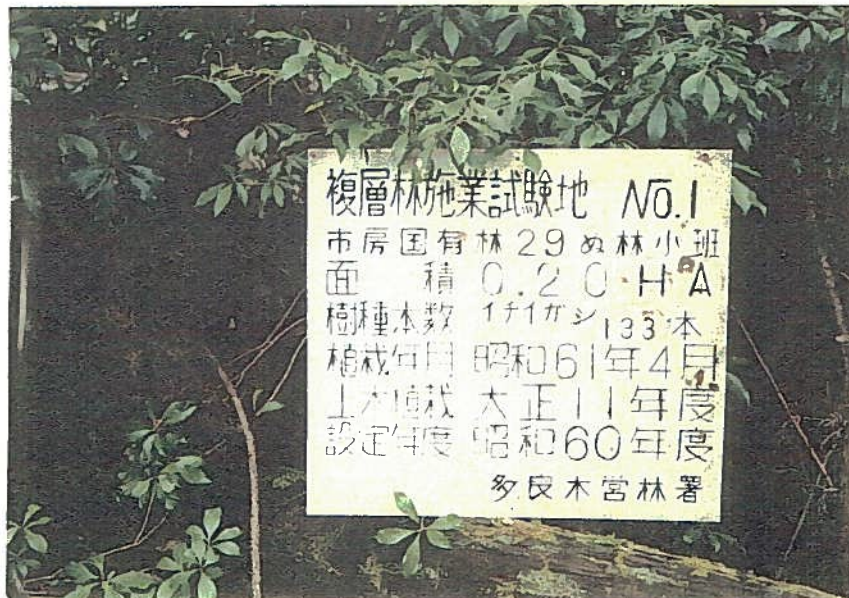 複層林施業試験地 No.1
市房国有林29ぬ林小班
面積 0.20HA
樹種本数 イチイガシ 133本
植栽年月 昭和61年4月
上木植栽 大正11年度
設定年度 昭和60年度
多良木営林署